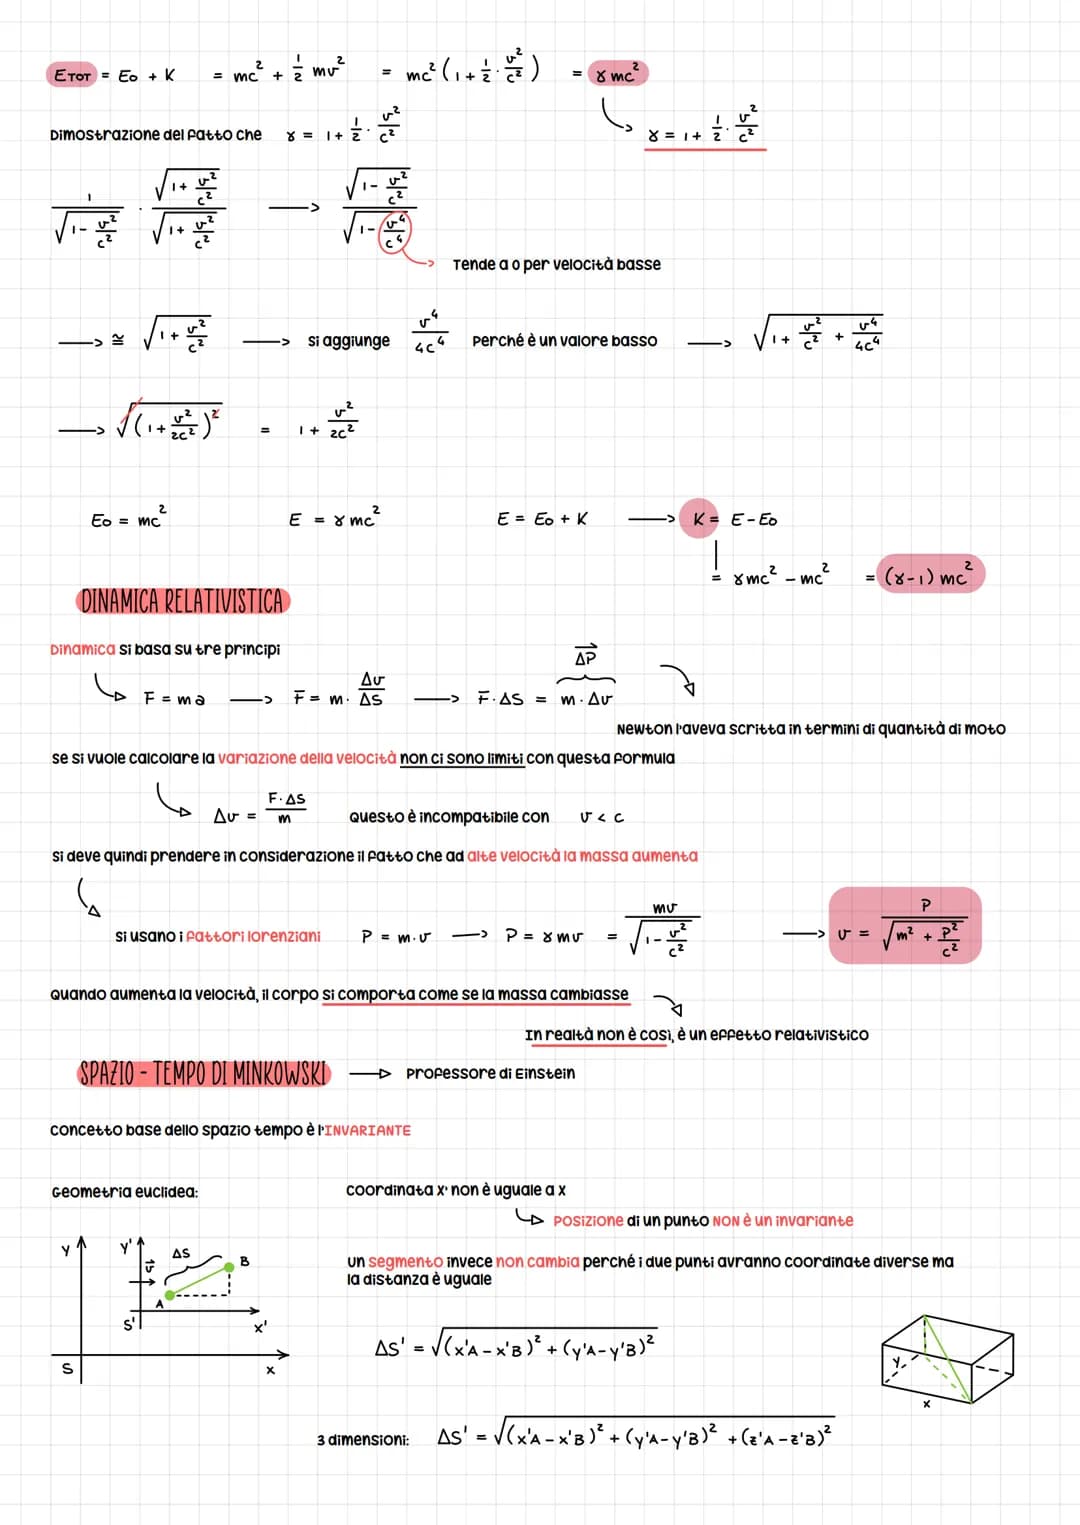 ETOT = E0 + K = mc² + 1/2 mv² = mc² (1 + 1/2 · v²/c²) = γmc²
Dimostrazione del fatto che γ = 1 + 1/2 · v²/c²
γ = 1 + 1/2 · v²/c²
1/√(1 - v²/c²) · √(1 + v²/c²)/√(1 + v²/c²) → √(1 - v²/c²)/√(1 - v⁴/c⁴)
Tende a 0 per velocità basse
→ ≅ √(1 + v²/c²) → si aggiunge v⁴/4c⁴ perché è un valore basso → √(1 + v²/c² + v⁴/4c⁴)
→ √(1 + v²/2c²)² = 1 + v²/2c²
E0 = mc² E = γmc² E = E0 + K → K = E - E0
= γmc² - mc² = (γ-1) mc²
DINAMICA RELATIVISTICA
Dinamica si basa su tre principi
ΔP
F = ma → F = m · Δv/ΔS → F·ΔS = m·Δv
Newton l'aveva scritta in termini di quantità di moto
se si vuole calcolare la variazione della velocità non ci sono limiti con questa formula
Δv = F·ΔS/m Questo è incompatibile con v < c
si deve quindi prendere in considerazione il fatto che ad alte velocità la massa aumenta
si usano i fattori lorenziani P = m·v → P = γmv = mv/√(1 - v²/c²) → v = P/√(m² + P²/c²)
Quando aumenta la velocità, il corpo si comporta come se la massa cambiasse
In realtà non è così, è un effetto relativistico
SPAZIO - TEMPO DI MINKOWSKI → Professore di Einstein
concetto base dello spazio tempo è l'INVARIANTE
Geometria euclidea: coordinata x' non è uguale a x
POSIZIONE di un punto NON è un invariante
un segmento invece non cambia perché i due punti avranno coordinate diverse ma
la distanza è uguale
y y' v ΔS B
A
S' x'
S x
ΔS' = √(x'A - x'B)² + (y'A - y'B)²
y
x
3 dimensioni: ΔS' = √(x'A - x'B)² + (y'A - y'B)² + (z'A - z'B)²